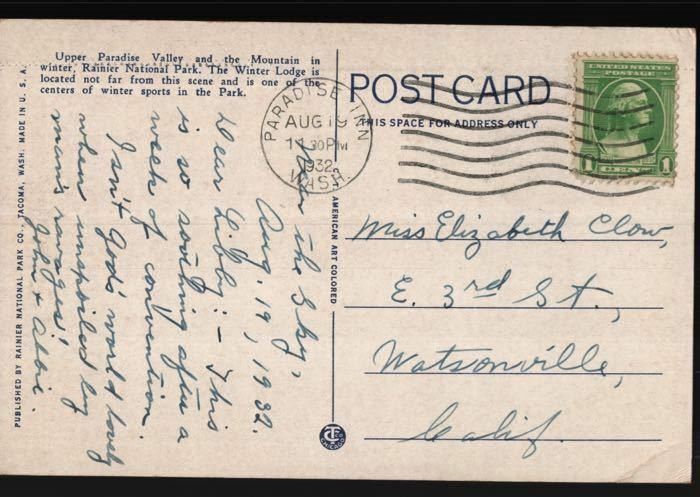 Upper Paradise Valley and the Mountain in
winter, Rainier National Park. The Winter Lodge is
located not far from this scene and is one of the
centers of winter sports in the Park.
POST CARD
THIS SPACE FOR ADDRESS ONLY
UNITED STATES
POSTAGE
1 CENT 1
PARADISE INN
AUG 19
11 30 PM
1932
WASH.
the Sky,
Aug. 19, 1932.
Dear Libby: – This
is so soothing after a
week of convention.
Isn't God's world lovely
when unspoiled by
man's ravages!
John + Abbie.
Miss Elizabeth Clow,
E. 3rd St.,
Watsonville,
Calif.
PUBLISHED BY RAINIER NATIONAL PARK CO., TACOMA, WASH. MADE IN U. S. A.
AMERICAN ART COLORED